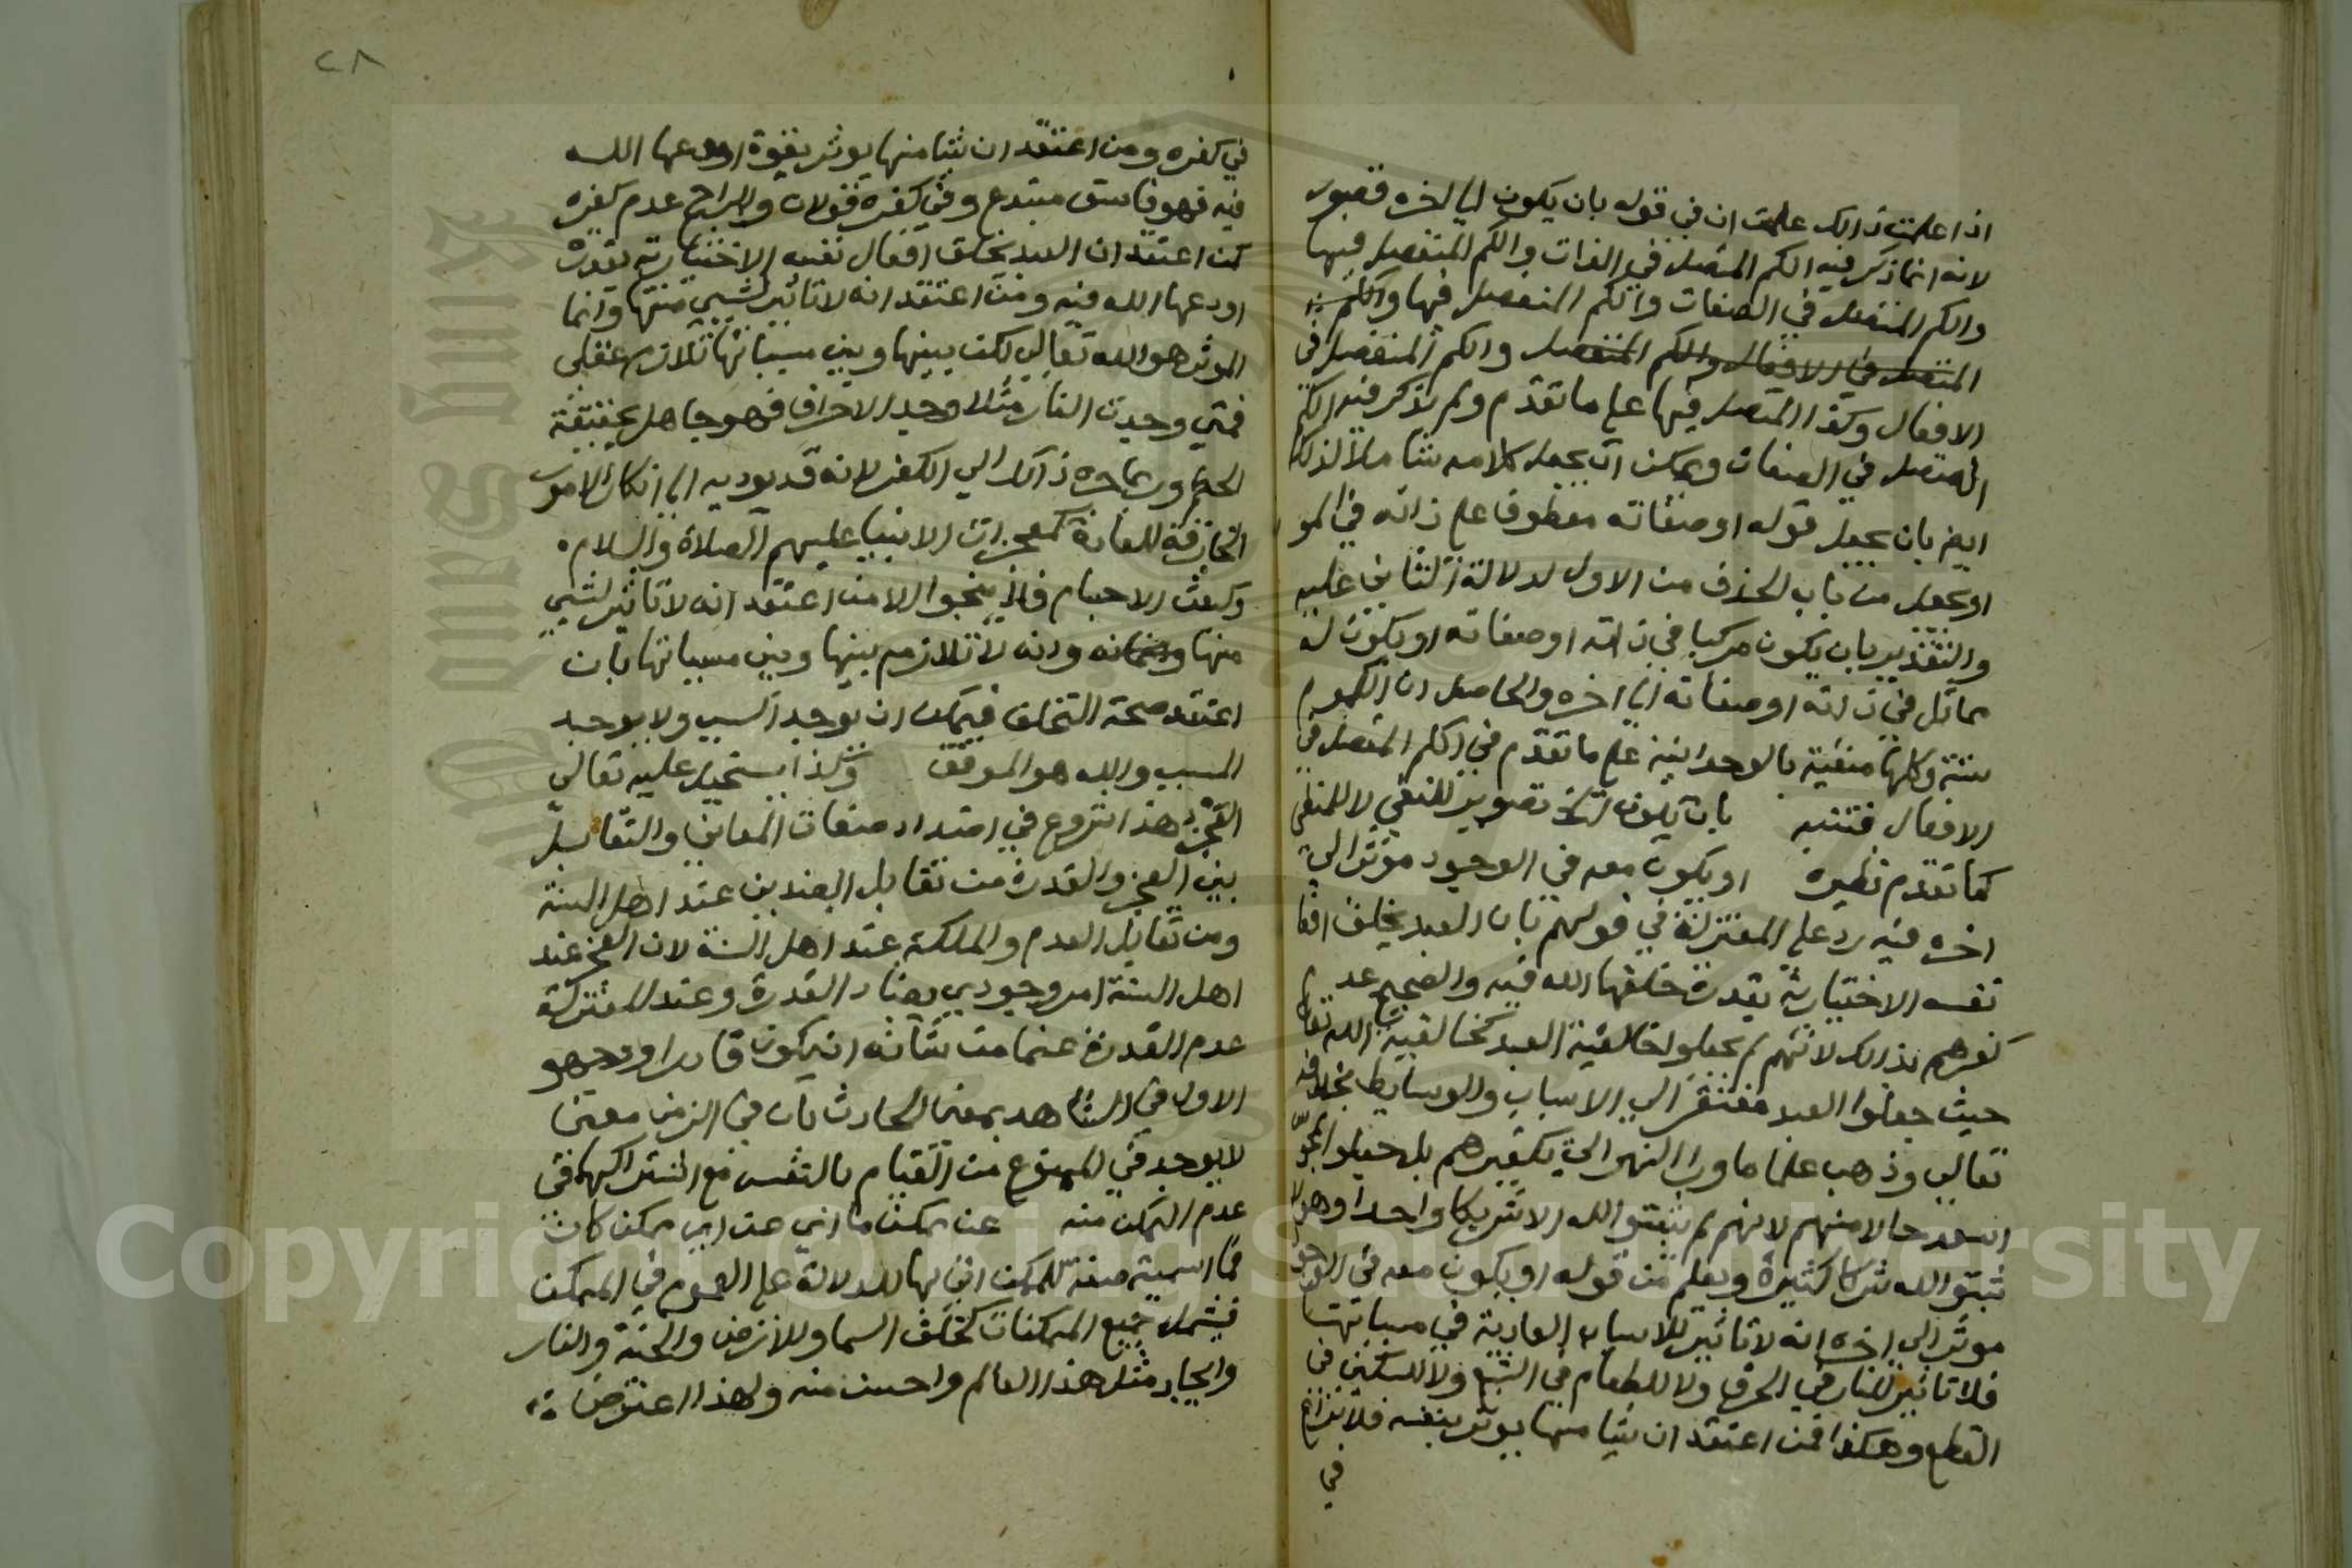 اذا علمت ذالك علمت ان في قوله بان يكون الي اخره قصور
لانه انما ذكر فيه الكم المتصل في الذات والكم المنفصل فيها
والكم المنفصل في الصفات والكم المنفصل فيها والكم
المتصل في الافعال والكم المنفصل والكم المنفصل في
الافعال وكذا المتصل فيها على ما تقدم ولم يذكر فيه الكم
المتصل في الصفات ويمكن ان يجعل كلامه شاملا لذلك
ايضا بان يجعل قوله او صفاته معطوفا على ذاته في المو
او يجعل من باب الحذف من الاول لدلالة الثاني عليه
والتقدير بان يكون مركبا في ذاته او صفاته او يكون له
مماثل في ذاته او صفاته الي اخره والحاصل ان الكموم
ستة وكلها منفية بالوحدانية على ما تقدم في الكم المتصل في
الافعال فتنبه بان يكون الخ تصوير للنفي لا للمنفي
كما تقدم نظيره او يكون معه في الوجود موثر الي
اخره فيه رد على المعتزلة في قولهم بان العبد يخلق افعا
نفسه الاختيارية بقدرة خلقها الله فيه والصحيح عدم
كفرهم بذالك لانهم لم يجعلوا خالقية العبد كخالقية الله تعالى
حيث جعلوا العبد مفتقر الي الاسباب والوسايط بخلافه
تعالى وذهب علما ما ورا النهر الي تكفيرهم بل جعلوا المجو
اسعد حالا منهم لانهم لم يثبتوا لله الا شريكا واحدا وهولا
ثبتوا لله شركا كثيرة ويعلم من قوله او يكون معه في الوجود
موثر الى اخره انه لا تاثير للاسباب العادية في مسبباتها
فلا تاثير للنار في الحرق ولا للطعام في الشبع ولا للسكين في
القطع وهكذا فمن اعتقد ان شيا منها يوثر بنفسه فلا نزاع
في
٢٨
في كفره ومن اعتقد ان شيا منها يوثر بقوة اودعها الله
فيه فهو فاسق مبتدع وفي كفره قولان والراجح عدم كفره
كمن اعتقد ان العبد يخلق افعال نفسه الاختيارية بقدرة
اودعها الله فيه ومن اعتقد انه لا تاثير لشيي منها وانما
الموثر هو الله تعالى لكن بينها وبين مسبباتها تلازم عقلي
فمتي وجدت النار مثلا وجد الاحراق فهو جاهل بحقيقة
الحكم وربما جره ذالك الي الكفر لانه قد يوديه الي انكار الامور
الخارقة للعادة كمعجزات الانبيا عليهم الصلاة والسلام
وكبعث الاجسام فلا ينجوا الا من اعتقد انه لا تاثير لشيي
منها وانه لا تلازم بينها وبين مسبباتها بان
اعتقد صحة التخلف فيمكن ان يوجد السبب ولا يوجد
المسبب والله هو الموفق وكذا يستحيل عليه تعالى
العجز هذا شروع في اضداد صفات المعاني والتقابل
بين العجز والقدرة من تقابل الضدين عند اهل السنة
ومن تقابل العدم والملكة عند اهل السنة لان العجز عند
اهل السنة امر وجودي يضاد القدرة وعند المعتزلة
عدم القدرة عما من شانه ان يكون قادرا ووجهه
الاول في الشاهد بمعني الحادث بان في الزمن معني
لا يوجد في الممنوع من القيام بالنفس مع اشتراكهما في
عدم التمكن منه عن ممكن ما اي عن اي ممكن كان
فما اسمية صفة للممكن اتي بها للدلالة على العموم في الممكن
فيشمل جميع الممكنات كخلف السما وللارض والجنة والنار
وايجاد مثل هذا العالم واحسن منه ولهذا اعترض